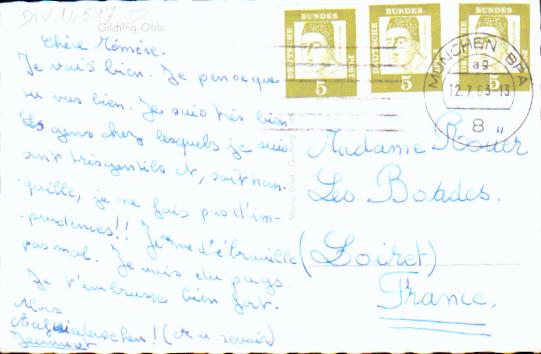 DIV 14517
Gilching. Obb.
Chère Mémère.
Je vais bien. Je pense que
tu vas bien. Je suis très bien
Les gens chez lesquels je suis
sont très gentils et, soit tran-
quille, je ne fais pas d'im-
prudences!! Je me débrouille
pas mal. Je vois du pays.
Je t'embrasse bien fort.
Alors
Auf (au revoir)
DEUTSCHE BUNDESPOST
5
DEUTSCHE BUNDES
5
BUNDES
5
MÜNCHEN BPA
ag
12.7.63-13
8
Madame
Les
(Loiret)
France.